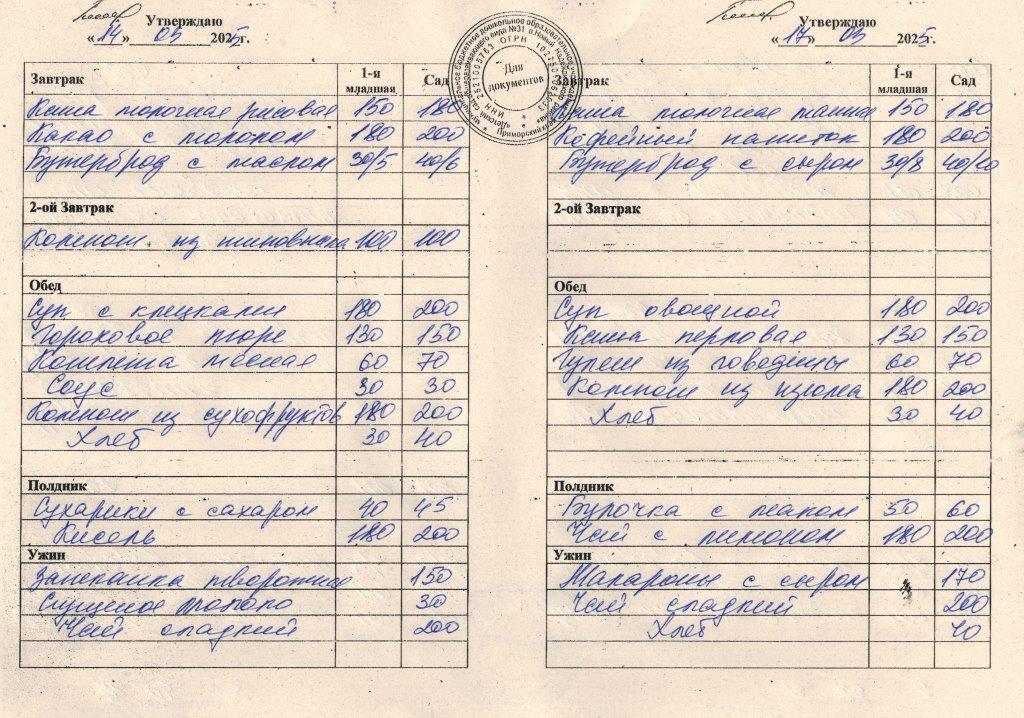 Утверждаю
«14» 03 2025г.
Завтрак 1-я младшая Сад
Каша молочная рисовая 150 180
Какао с молоком 180 200
Бутерброд с маслом 30/5 40/6
2-ой Завтрак
Компот из шиповника 100 100
Обед
Суп с клецками 180 200
Гороховое пюре 130 150
Котлета мясная 60 70
Соус 30 30
Компот из сухофруктов 180 200
Хлеб 30 40
Полдник
Сухарики с сахаром 40 45
Кисель 180 200
Ужин
Запеканка творожная 150
Сгущеное молоко 30
Чай сладкий 200
Для документов
Утверждаю
«17» 03 2025г.
Завтрак 1-я младшая Сад
Каша молочная манная 150 180
Кофейный напиток 180 200
Бутерброд с сыром 30/8 40/10
2-ой Завтрак
Обед
Суп овощной 180 200
Каша перловая 130 150
Гуляш из говядины 60 70
Компот из изюма 180 200
Хлеб 30 40
Полдник
Булочка с маком 50 60
Чай с лимоном 180 200
Ужин
Макароны с сыром 170
Чай сладкий 200
Хлеб 40